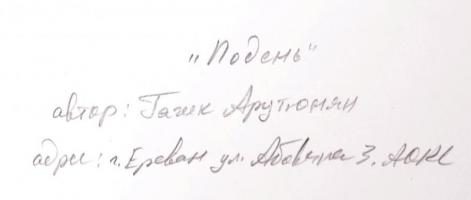 „Подень"
автор: Гагик Арутюнян
адрес: г. Ереван ул. Абовяна 3, АОКС